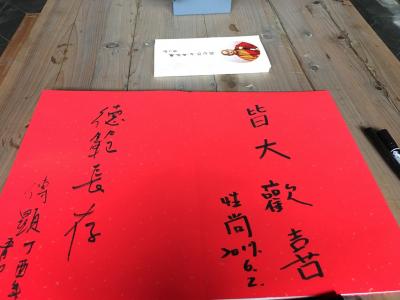 皆大歡喜
性尚
2017.
6.
2.
德範長存
傳顯丁酉年